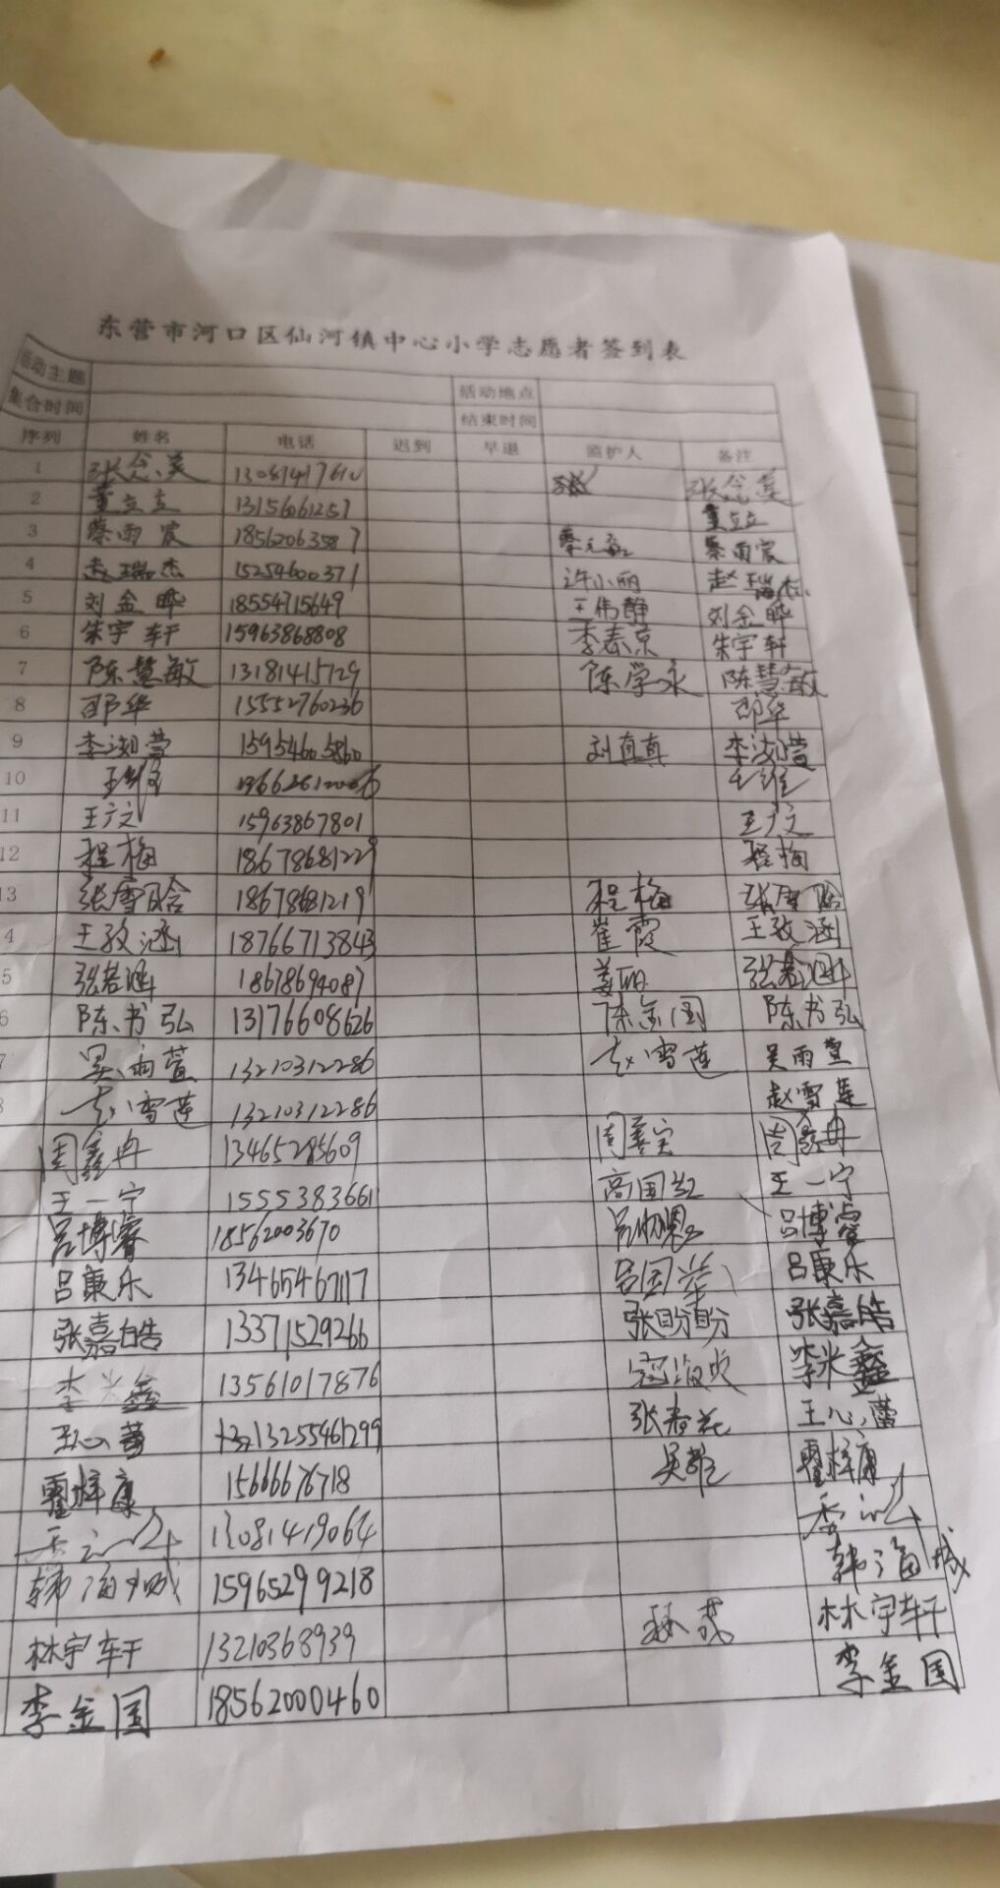 东营市河口区仙河镇中心小学志愿者签到表
活动主题 活动地点
集合时间 结束时间
序列 姓名 电话 迟到 早退 监护人 备注
1 张念美 张念美
2 董立立 13156061257 董立立
3 蔡雨宸 18562063587 蔡雨宸
4 赵瑞杰 15254600371 许小丽 赵瑞杰
5 刘金晔 18554715649 王伟静 刘金晔
6 朱宇轩 15963868808 李春京 朱宇轩
7 陈慧敏 13181415729 陈学永 陈慧敏
8 邵华 15552760236 邵华
9 李淑萱 15954605860 刘真真 李淑萱
10 王维 王维
11 王广文 15963867801 王广文
12 程梅 18678681229 程梅
13 张雪晗 18678681219 程梅 张雪晗
4 王敬涵 18766713843 崔霞 王敬涵
5 张若涵 18678694087 姜丽 张若涵
6 陈书弘 13176608626 陈金国 陈书弘
7 吴雨萱 13210312286 赵雪莲 吴雨萱
8 赵雪莲 13210312286 赵雪莲
周鑫冉 13465285609 周善宝 周鑫冉
王一宁 15553383661 高国红 王一宁
吕博睿 18562003670 吕博睿
吕康乐 13465467117 吕国华 吕康乐
张嘉皓 13371529266 张盼盼 张嘉皓
李米鑫 13561017876 李米鑫
王心蕾 13255461299 张春花 王心蕾
霍梓康 15666676718 吴艳 霍梓康
13081419064
韩海城 15965299218 韩海城
林宇轩 13210368939 林宇轩
李金国 18562000460 李金国